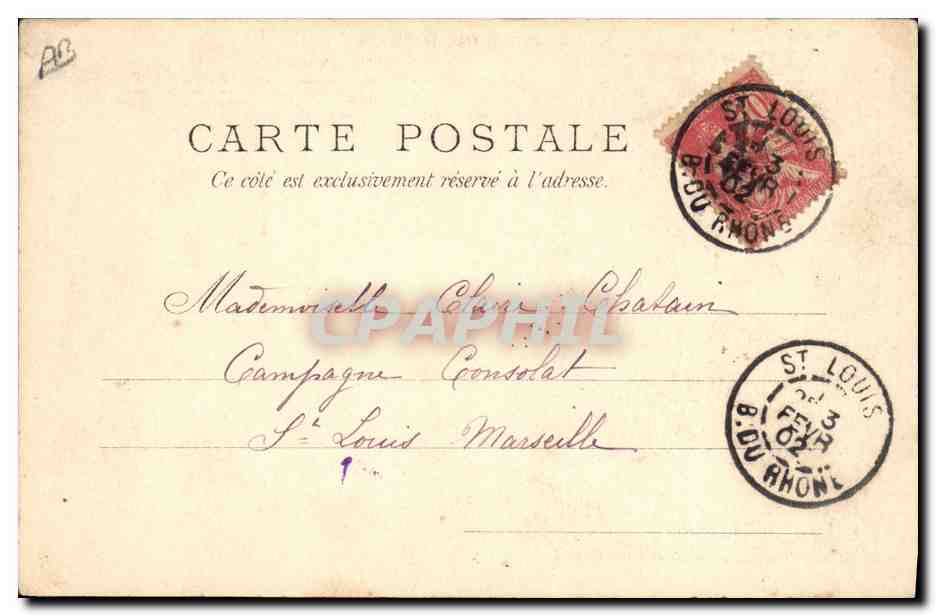 AB
CARTE POSTALE
Ce côté est exclusivement réservé à l'adresse.
ST LOUIS
3
FEVR
02
B. DU RHONE
Mademoiselle Claire Chatain
CPAPHIL
Campagne Consolat
St Louis Marseille
ST LOUIS
3
FEVR
02
B. DU RHONE